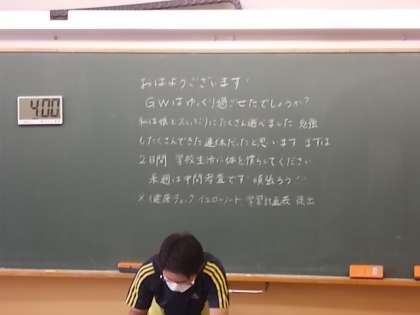 400
おはようございます
GWはゆっくり過ごせたでしょうか?
私は娘と久しぶりにたくさん遊べました 勉強
もたくさんできた連休だったと思います まずは
2日間 学校生活に体を慣らしてください
来週は中間考査です 頑張ろう
健康チェック イエローシート 学習計画表 提出